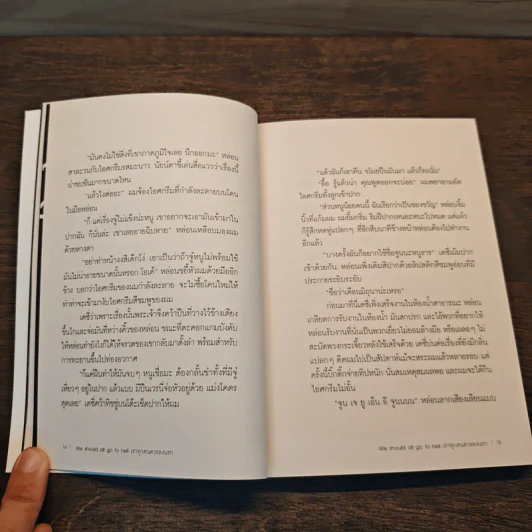 "มันคงไม่ใช่สิ่งที่เขาภาคภูมิใจเลย นึกออกมะ" หล่อน
สาละวนกับไอศกรีมรสมะนาว นัยน์ตาขี้เล่นสื่อแววว่าเรื่องนี้
น่าขบขันมากขนาดไหน
"แล้วไงต่ออะ" ผมจ้องไอศกรีมที่กำลังละลายบนโคน
ในมือหล่อน
"ก็ แต่เรื่องจู๋ไม่แข็งน่ะหนู เขาอยากจะเอามันเข้ามาใน
ปากฉัน ก็นั่นล่ะ เขาเลยอายฉิบหาย" หล่อนเหลือบมองผม
ด้วยหางตา
"อย่าทำหน้างงสิเด็กโง่ เอาเป็นว่าถ้าจู๋หนูไม่พร้อมใช้
มันไม่น่าอายขนาดนั้นหรอก โอเค้" หล่อนขยี้หัวผมด้วยมืออีก
ข้าง บอกว่าไอศกรีมของผมกำลังละลาย จะไม่ซื้อโคนใหม่ให้
ท่าทำจะเข้ามางับไอศกรีมสีชมพูของผม
เดซี่ว่าเพราะเรื่องนั้นพระเจ้าจึงคว้าปืนที่วางไว้ข้างเตียง
ขึ้นไกและจ่อมันที่หว่างคิ้วของหล่อน ขณะที่ตะคอกแกมบังคับ
ให้หล่อนทำยังไงก็ได้ให้จรวดของเขากลับมาตั้งลำ พร้อมสำหรับ
การทะยานขึ้นไปท่องอวกาศ
"ก็แค่ฝืนทำให้มันจบๆ หนูเชื่อมะ ต้องกลั้นขำทั้งที่มีจู๋
เหี่ยวๆ อยู่ในปาก แล้วแบบ มีปืนเวรนี่จ่อหัวอยู่ด้วย แม่งโคตร
สุดเลย" เดซี่คว้าทิชชู่บนโต๊ะเช็ดปากให้ผม
14 | We should all go to hell เราทุกคนควรลงนรก
"แล้วฉันก็เอาคืน ขโมยปืนมันมา แล้วก็ยิงมัน"
"อื้อ รู้แล้วน่า คุณพูดออกจะบ่อย" ผมพยายามยัด
ไอศกรีมทั้งลูกเข้าปาก
"ส่วนหนูน้อยคนนี้ ฉันเรียกว่าเป็นของขวัญ" หล่อนจิ้ม
นิ้วที่แก้มผม ผมยิ้มกริ่ม ริมฝีปากเหนอะหนะไปหมด แต่แล้ว
ก็รู้สึกหดหู่แปลกๆ ที่อีกสิบนาทีข้างหน้าหล่อนต้องไปทำงาน
อีกแล้ว
"บางครั้งฉันก็อยากใช้ชื่อจูนนะหนูจ๋า" เดซี่เม้มปาก
เข้าด้วยกัน หล่อนเพิ่งเติมสีปากด้วยลิปสติกสีชมพูอ่อนที่มี
ประกายระยิบระยับ
"ชื่อว่าเดือนมิถุนาน่ะเหรอ"
ก่อนมาที่นี่เดซี่เพิ่งเสร็จงานในห้องน้ำสาธารณะ หล่อน
เกลียดการรับงานในห้องน้ำ มันสกปรก และไอ้พวกที่อยากให้
หล่อนรับงานที่นั่นเป็นพวกเยี่ยวไม่ยอมล้างมือ หรือเผลอๆ ไม่
สะบัดพวงกระเจี๊ยวหลังใช้เสร็จด้วย เดซี่บ่นต่อเรื่องที่ยังมีกลิ่น
แปลกๆ ติดผมไปเป็นสัปดาห์แม้จะสระผมแล้วหลายรอบ แต่
ครั้งนี้บิ๊กดิ๊กจ่ายทิปหนัก นั่นสมเหตุสมผลพอ และผมจะได้กิน
ไอศกรีมไม่อั้น
"จูน เจ ยู เอ็น อี จูนนนน" หล่อนลากเสียงเลียนแบบ
We should all go to hell เราทุกคนควรลงนรก | 15